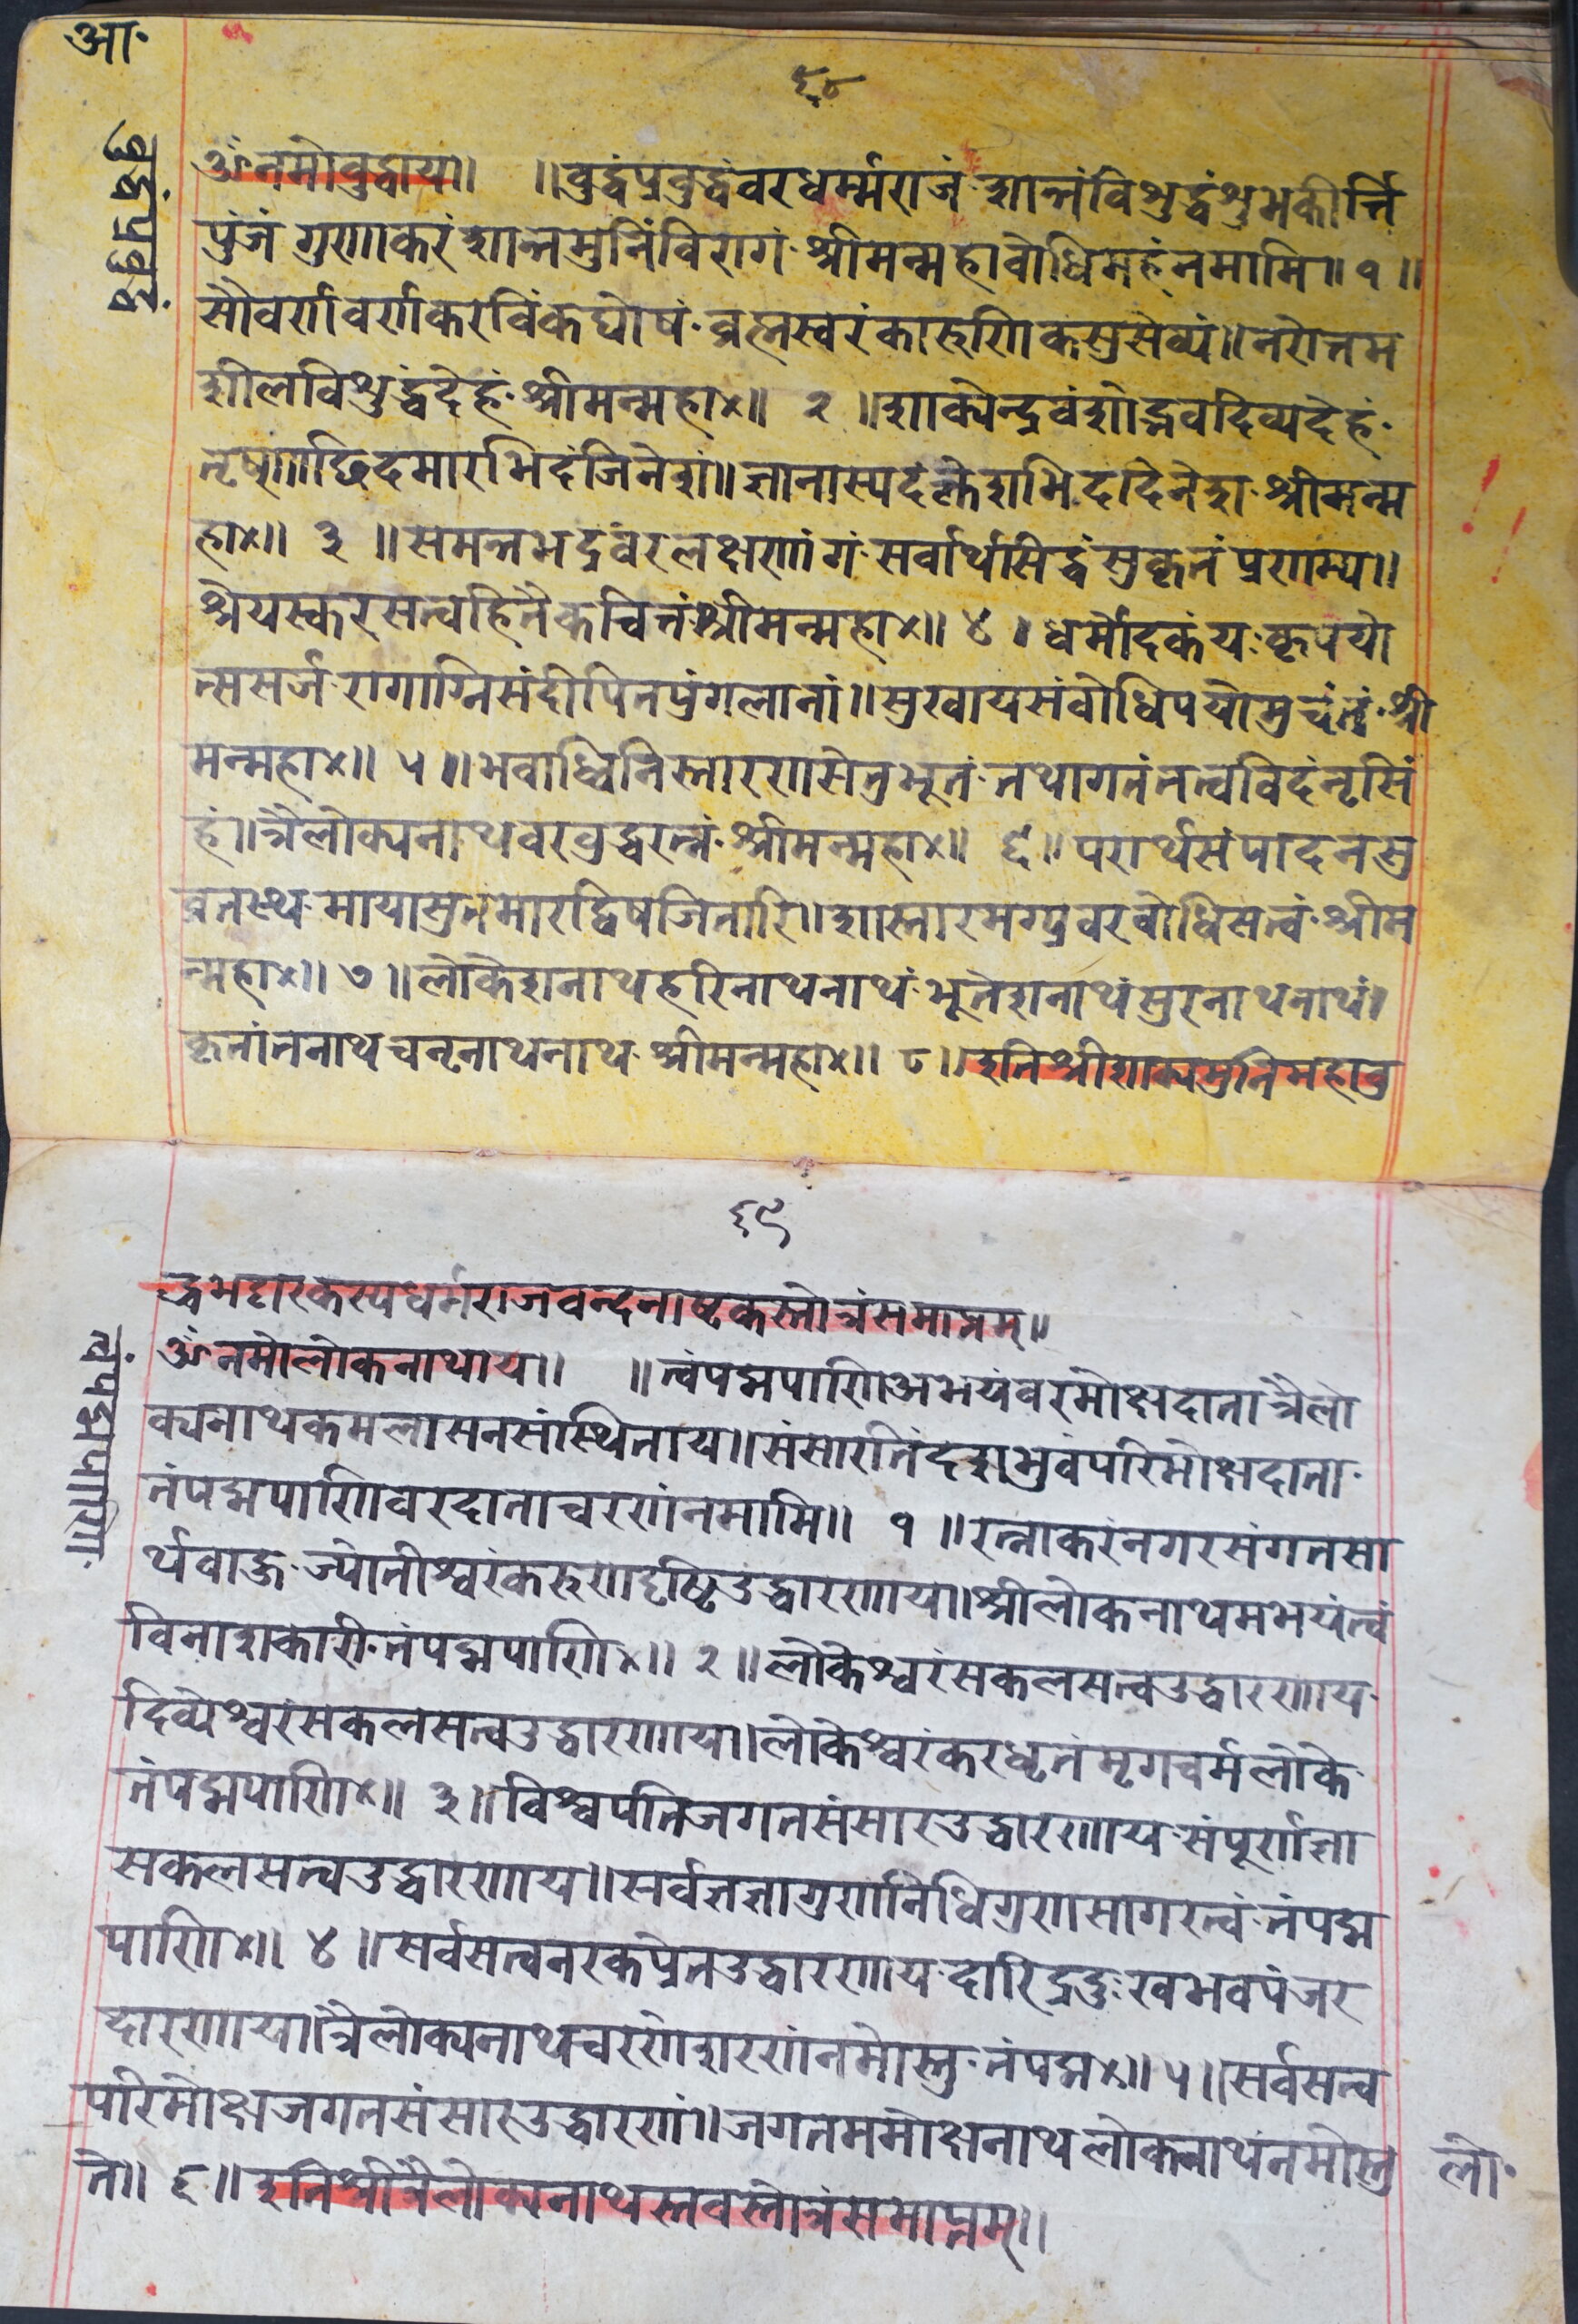 आ॰
६८
बुद्धंप्रबुद्धं
ॐनमोवुद्धाय॥ ॥वुद्धंप्रवुद्धंवरधर्म्मराजं॰शान्तंविशुद्धंशुभकीर्त्ति
पुंजं गुणाकरंशान्तमुनिंविरागं॰श्रीमन्महावोधिमहंनमामि॥१॥
सौवर्णवर्णकरविंकघोषं॰ब्रह्मस्वरंकारुणिकसुसेव्यं॥नरोत्तम
शीलविशुद्धंदेहं॰श्रीमन्महा×॥ २ ॥शाक्येन्द्रवंशोद्भवदिव्यदेहं॰
तृष्णाछिदमारभिदंजिनेशं॥ज्ञानास्पदंक्लेशभिददिनेश॰श्रीमन्म
हा×॥ ३ ॥समन्तभद्रंवरलक्षणांगं॰सर्वार्थसिद्धंसुकृतंप्रणम्य॥
श्रेयस्करसत्वहितैकचित्तं॰श्रीमन्महा×॥ ४ । धर्मोदकंय॰कृपयो
त्ससर्ज॰रागाग्निसंदीपितपुंगलानां॥सुखायसंवोधिपयोमुचंतं॰श्री
मन्महा×॥ ५ ॥भवाब्धिनिस्तारणसेतुभूतं॰तथागतंतत्वविदंनृसिं
हं॥त्रैलोक्यनाथवरवुद्धरत्नं॰श्रीमन्महा×॥ ६॥परार्थसंपादनसु
व्रतस्थ॰मायासुतंमारद्विषजितारि॥शास्तारमग्र्यवरवोधिसत्वं॰श्रीम
न्महा×॥ ७ ॥लोकेशनाथहरिनाथनाथं॰भूतेशनाथंसुरनाथनाथं।
कृतांतनाथचनृनाथनाथ॰श्रीमन्महा×॥ ८॥इतिश्रीशाक्यमुनिमहावु
६९
त्वंपद्मपाणि॰
द्धभट्टारकस्यधर्मराजवन्दनाष्टकस्तोत्रंसमाप्तम्॥
ॐनमोलोकनाथाय॥ ॥त्वंपद्मपाणिअभयंवरमोक्षदाता॰त्रैलो
क्यनाथकमलासनसंस्थिताय॥संसारतिंदशभुवंपरिमोक्षदाता॰
तंपद्मपाणिवरदाताचरणंनमामि॥ १ ॥रत्नाकरंनगरसंगतसा
र्थवाह॰ज्योतीश्वरंकरुणदृष्टिउद्धारणाय॥श्रीलोकनाथमभयंत्वं
विनाशकारी॰तंपद्मपाणि×॥ २ ॥लोकेश्वरंसकलसत्वउद्धारणाय॰
दिव्येश्वरंसकलसत्वउद्धारणाय॥लोकेश्वरंकरधृतंमृगचर्मलोके॰
तंपद्मपाणि×॥ ३॥विश्वपतिजगतसंसारउद्धारणाय॰संपूर्णज्ञा
सकलसत्वउद्धारणाय॥सर्वज्ञज्ञागुणनिधिगुणसागरत्वं॰तंपद्म
पाणि×॥ ४ ॥सर्वसत्वनरकप्रेतउद्धारणाय॰दारिद्रदुःखभवपंजर
दारणाय॥त्रैलोक्यनाथचरणेशरणंनमोस्तु॰तंपद्म×॥ ५॥सर्वसत्व
परिमोक्षजगतसंसारउद्धारणं॥जगतममोक्षनाथलोकनाथंनमोस्तु
ते॥ ६ ॥इतिश्रीत्रैलोक्यनाथस्तवस्तोत्रंसमाप्तम्॥
लो॰